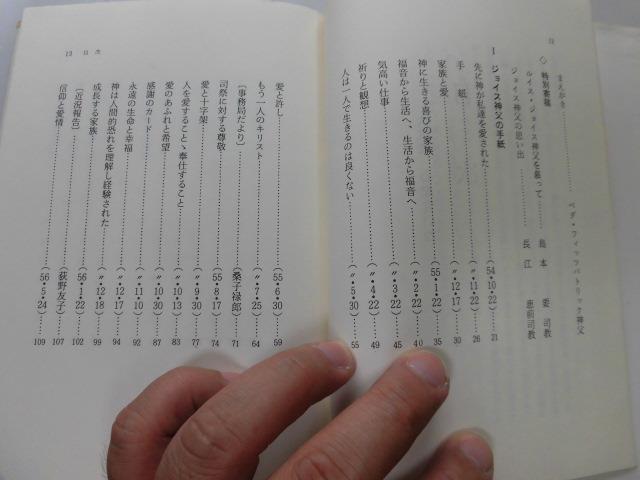 12
まえがき……………ペダ・フィッツパトリック神父
◇特別寄稿
ルイス・ジョイス神父を慕って…島本 要 司教
ジョイス神父の思い出………長江 恵 司教
I ジョイス神父の手紙
先に神が私達を愛された……(54・10・22)……21
手紙……(〃・11・22)……26
家族と愛……(〃・12・17)……30
神に生きる喜びの家族……(55・1・22)……35
福音から生活へ、生活から福音へ……(〃・2・22)……40
気高い仕事……(〃・3・22)……45
祈りと観想……(〃・4・22)……49
人は一人で生きるのは良くない……(〃・5・30)……55
13 目次
愛と許し……(55・6・30)……59
もう一人のキリスト……(〃・7・25)……64
〔事務局だより〕……(桑子禄郎)……71
司祭に対する尊敬……(55・8・17)……74
愛と十字架……(〃・9・30)……77
人を愛すること、奉仕すること……83
愛のあふれと希望……(〃・10・30)……87
感謝のカード……(〃・11・10)……92
永遠の生命と幸福……(〃・12・17)……94
神は人間的恐れを理解し経験された……(〃・12・18)……99
成長する家族……(56・1・22)……102
〔近況報告〕……(荻野友子)……107
信仰と愛情……(56・5・24)……109